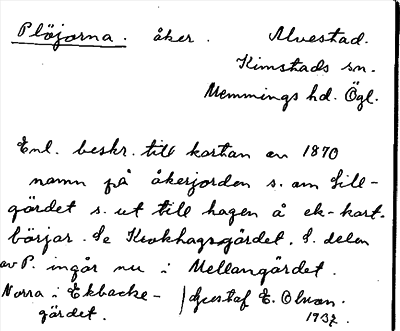 Plöjorna. åker. Alvestad.
Kimstads sn.
Memmings hd. Ögl.
Enl. beskr. till kartan av 1870
namn på åkerjorden s. om Lill-
gärdet s. ut till hagen å ek-kart.
börjar. Se Krokhagsgärdet. S. delen
av P. ingår nu i Mellangärdet.
Norra i Ekbacke- / Gustaf E. Olson.
gärdet. 1937.